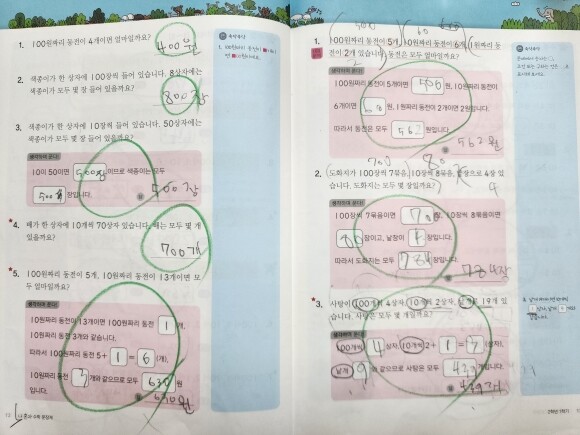 1. 100원짜리 동전이 4개이면 얼마일까요?
400원
2. 색종이가 한 상자에 100장씩 들어 있습니다. 8상자에는
색종이가 모두 몇 장 들어 있을까요?
800장
3. 색종이가 한 상자에 10장씩 들어 있습니다. 50상자에는
색종이가 모두 몇 장 들어 있을까요?
생각하며 푼다!
10이 50이면 500장 이므로 색종이는 모두
500 장입니다.
답 500장
*4. 배가 한 상자에 10개씩 70상자 있습니다. 배는 모두 몇 개
있을까요?
700개
*5. 100원짜리 동전이 5개, 10원짜리 동전이 13개이면 모
두 얼마일까요?
생각하며 푼다!
10원짜리 동전이 13개이면 100원짜리 동전 1 개,
10원짜리 동전 3개와 같습니다.
따라서 100원짜리 동전 5+ 1 = 6 (개),
10원짜리 동전 3 개와 같으므로 모두 630 원
입니다.
답 630원
12 나 혼자 수학 문장제
속닥속닥
500 60
1. 100원짜리 동전이 5개, 10원짜리 동전이 6개, 1원짜리 동
전이 2개 있습니다. 동전은 모두 얼마일까요?
생각하며 푼다!
100원짜리 동전이 5개이면 500 원, 10원짜리 동전이
6개이면 60 원, 1원짜리 동전이 2개이면 2원입니다.
따라서 동전은 모두 562 원입니다.
답 562원
700 80
2. (도화지가 100장씩 7묶음, 10장씩 8묶음, 낱장으로 4장 있
습니다. 도화지는 모두 몇 장일까요?
4
생각하며 푼다!
100장씩 7묶음이면 장, 10장씩 8묶음이면
80 장이고, 낱장이 4 장입니다.
따라서 도화지는 모두 784 장입니다.
답 784장
*3. 사탕이 100개씩 4상자, 10개씩 2상자, 낱개로 19개 있
습니다. 사탕은 모두 몇 개일까요?
생각하며 푼다!
100개씩 4 상자, 10개씩 2+ 1 = 3 (상자),
낱개 9 개와 같으므로 사탕은 모두 439 개입니다.
답 439개
속닥속닥
2학년 1학기